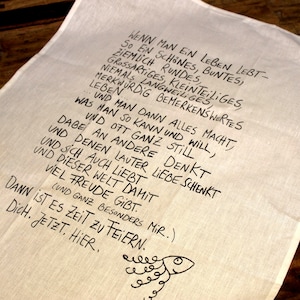 WENN MAN EIN LEBEN LEBT-
SO EIN SCHÖNES, BUNTES,
ZIEMLICH RUNDES,
GROSSARTIGES, KLEINTEILIGES,
NIEMALS LANGWEILIGES,
MERKWÜRDIG BEMERKENSWERTES
LEBEN
UND MAN DANN ALLES MACHT,
WAS MAN SO KANN UND WILL,
UND OFT GANZ STILL
DABEI AN ANDERE DENKT
UND DENEN LAUTER LIEBE SCHENKT
UND SICH AUCH LIEBT
UND DIESER WELT DAMIT
VIEL FREUDE GIBT
(UND GANZ BESONDERS MIR.)
DANN IST ES ZEIT ZU FEIERN.
DICH. JETZT. HIER.